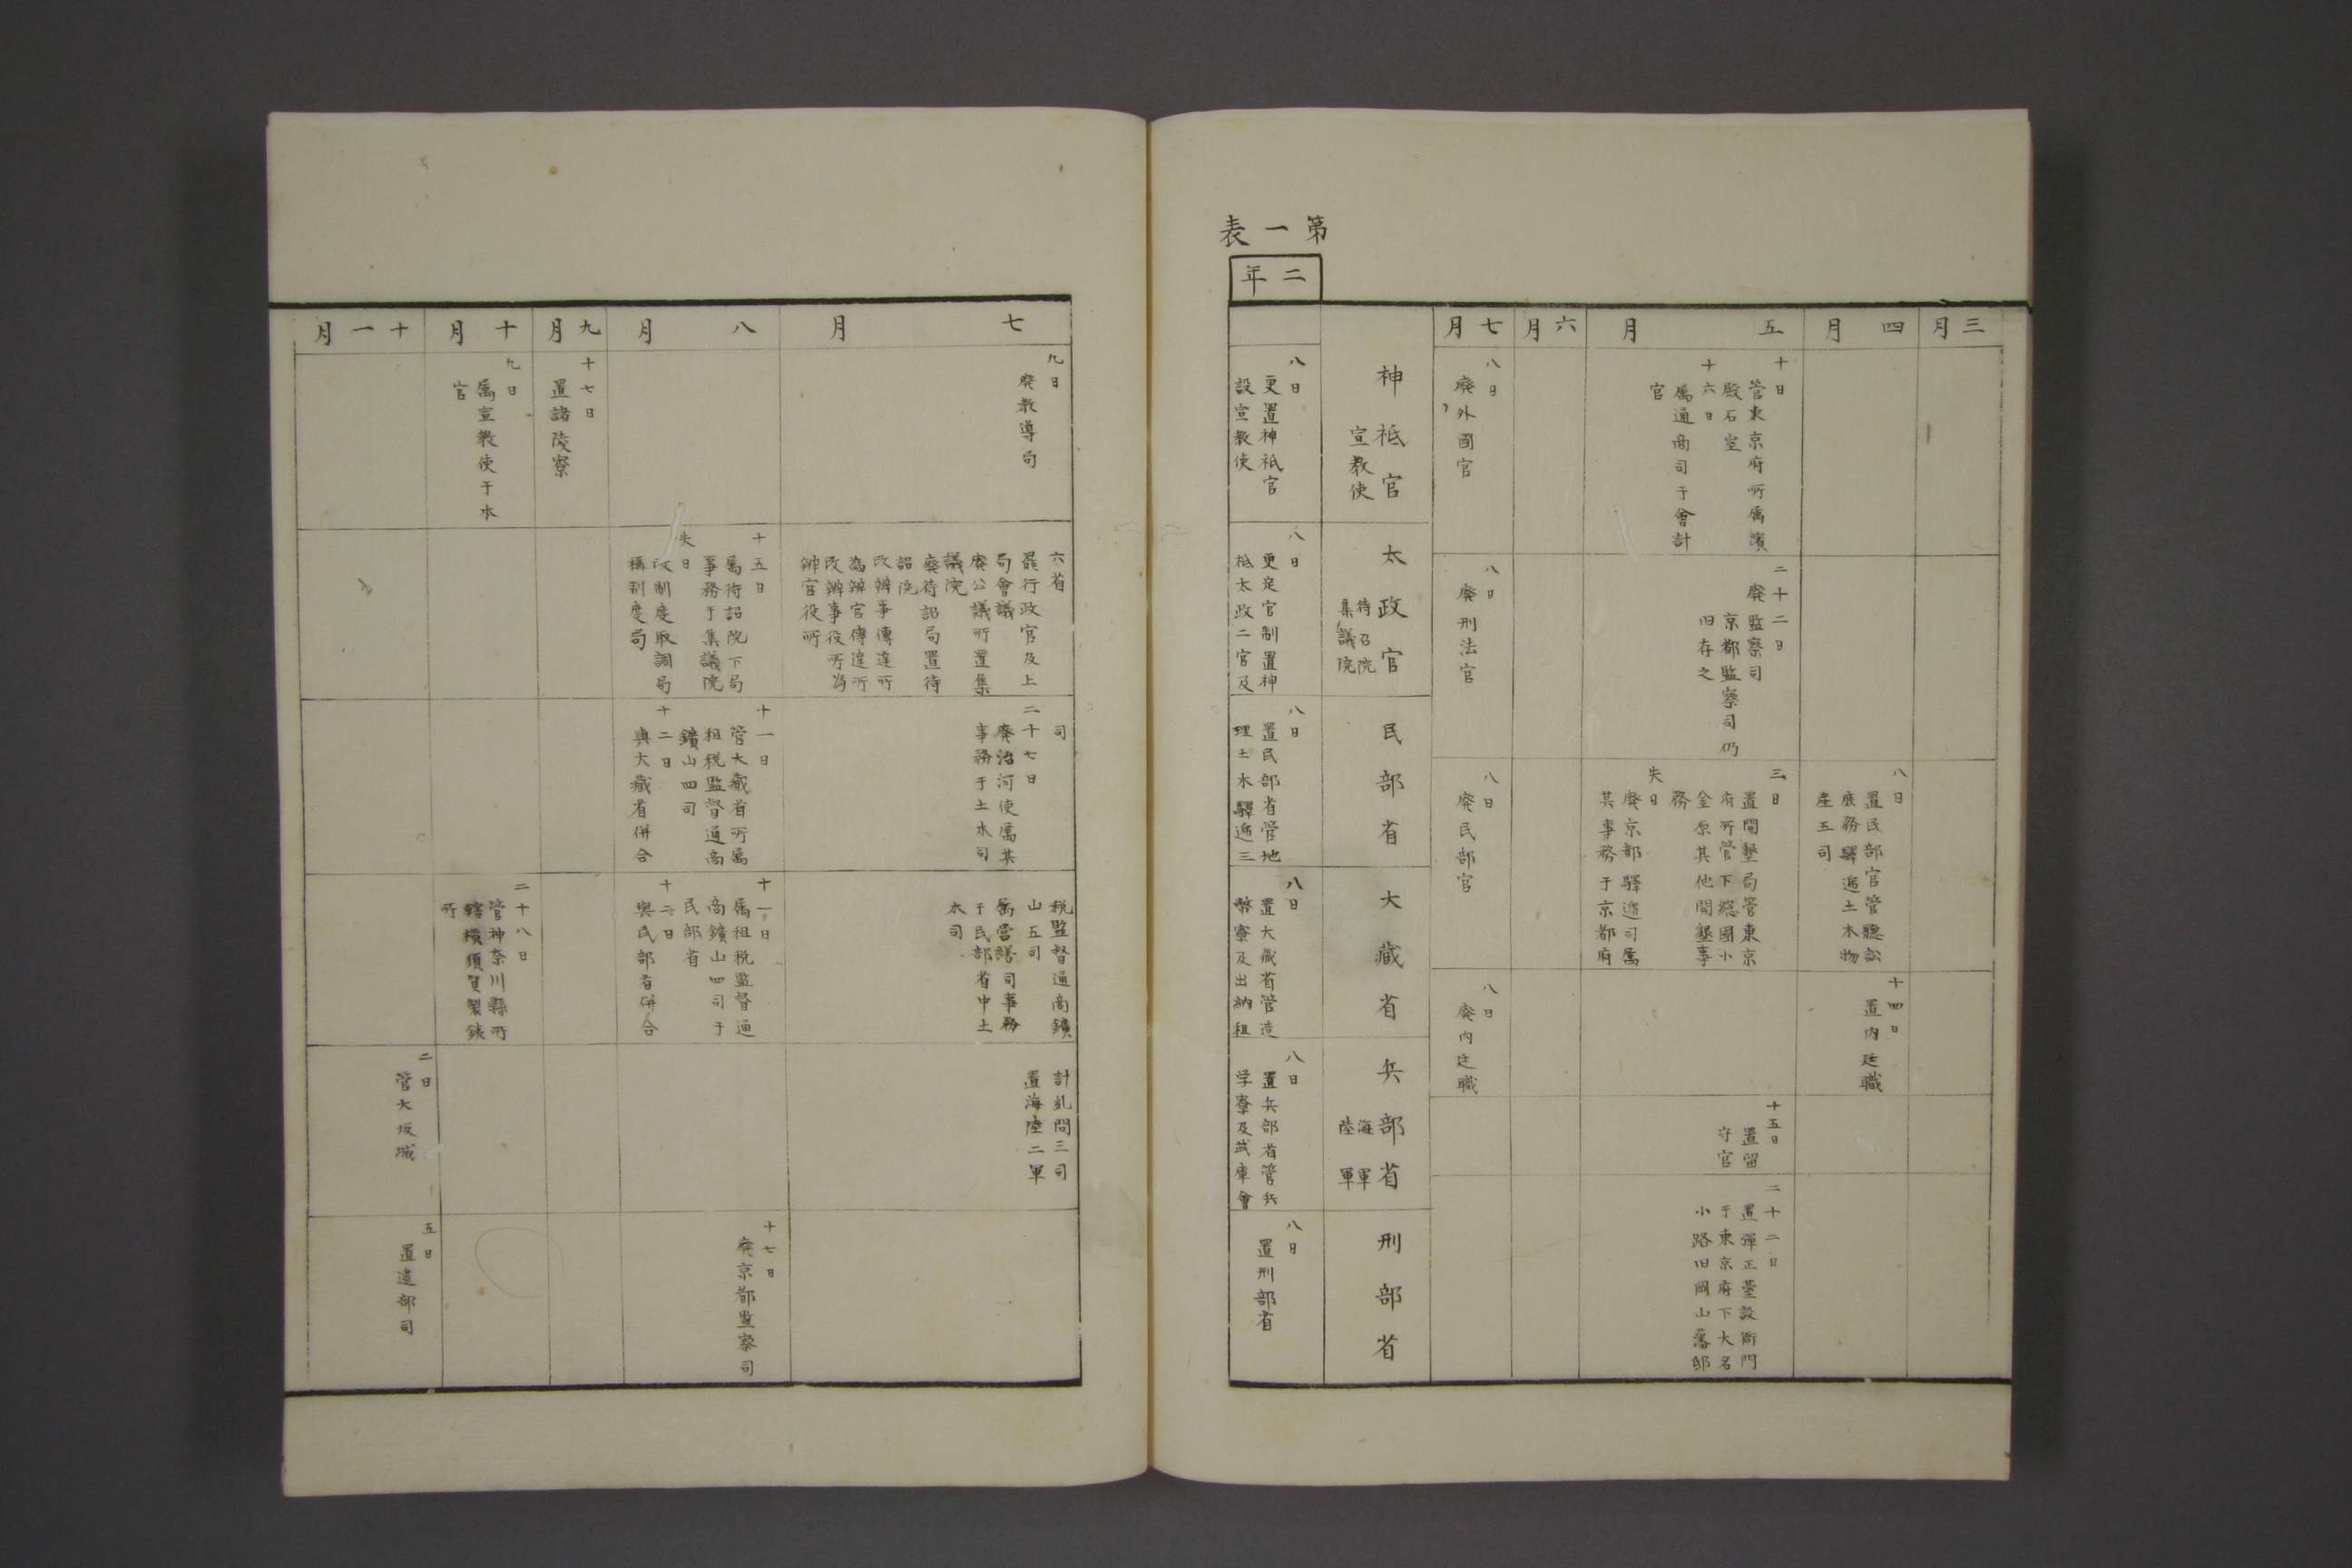 第一表
二年
三月
四月
八日
置民部官管聽訟
庶務驛遞土木物
産五司
十四日
置内廷職
五月
十日
管東京府所属濱
殿石室
十六日
属通商司于會計
官
二十二日
廃監察司
京都監察司仍
旧存之
三日
置開墾局管東京
府所管下総國小
金原其他開墾事
務
失日
廃京都驛逓司属
其事務于京都府
十五日
置留
守官
二十二日
置彈正臺設衙門
于東京府下大名
小路旧岡山藩邸
六月
七月
八日
廃外國官
八日
廃刑法官
八日
廃民部官
八日
廃内廷職
神祇官
宣教使
太政官
待召院
集議院
民部省
大藏省
兵部省
海軍
陸軍
刑部省
八日
更置神祇官
設宣教使
八日
更定官制置神
祇太政二官及
八日
置民部省管地
理土木驛逓三
八日
置大藏省管造
幣寮及出納租
八日
置兵部省管兵
学寮及武庫會
八日
置刑部省
七月
九日
廃教導局
六省
罷行政官及上
局會議
廃公議所置集
議院
廃待詔局置待
詔院
改辨事傳達所
為辨官傳達所
改辨事役所為
辨官役所
司
二十七日
廃治河使属其
事務于土木司
税監督通商鑛
山五司
属営繕司事務
于民部省中土
木司
計糺問三司
置海陸二軍
八月
十五日
属待詔院下局
事務于集議院
失日
改制度取調局
稱制度局
十一日
管大藏省所属
租税監督通商
鑛山四司
十二日
與大藏省併合
十一日
属租税監督通
商鑛山四司于
民部省
十二日
與民部省併合
十七日
廃京都監察司
九月
十七日
置諸陵寮
十月
九日
属宣教使于本
官
二十八日
管神奈川縣所
轄横須賀製銕
所
十一月
二日
管大坂城
五日
置逮部司